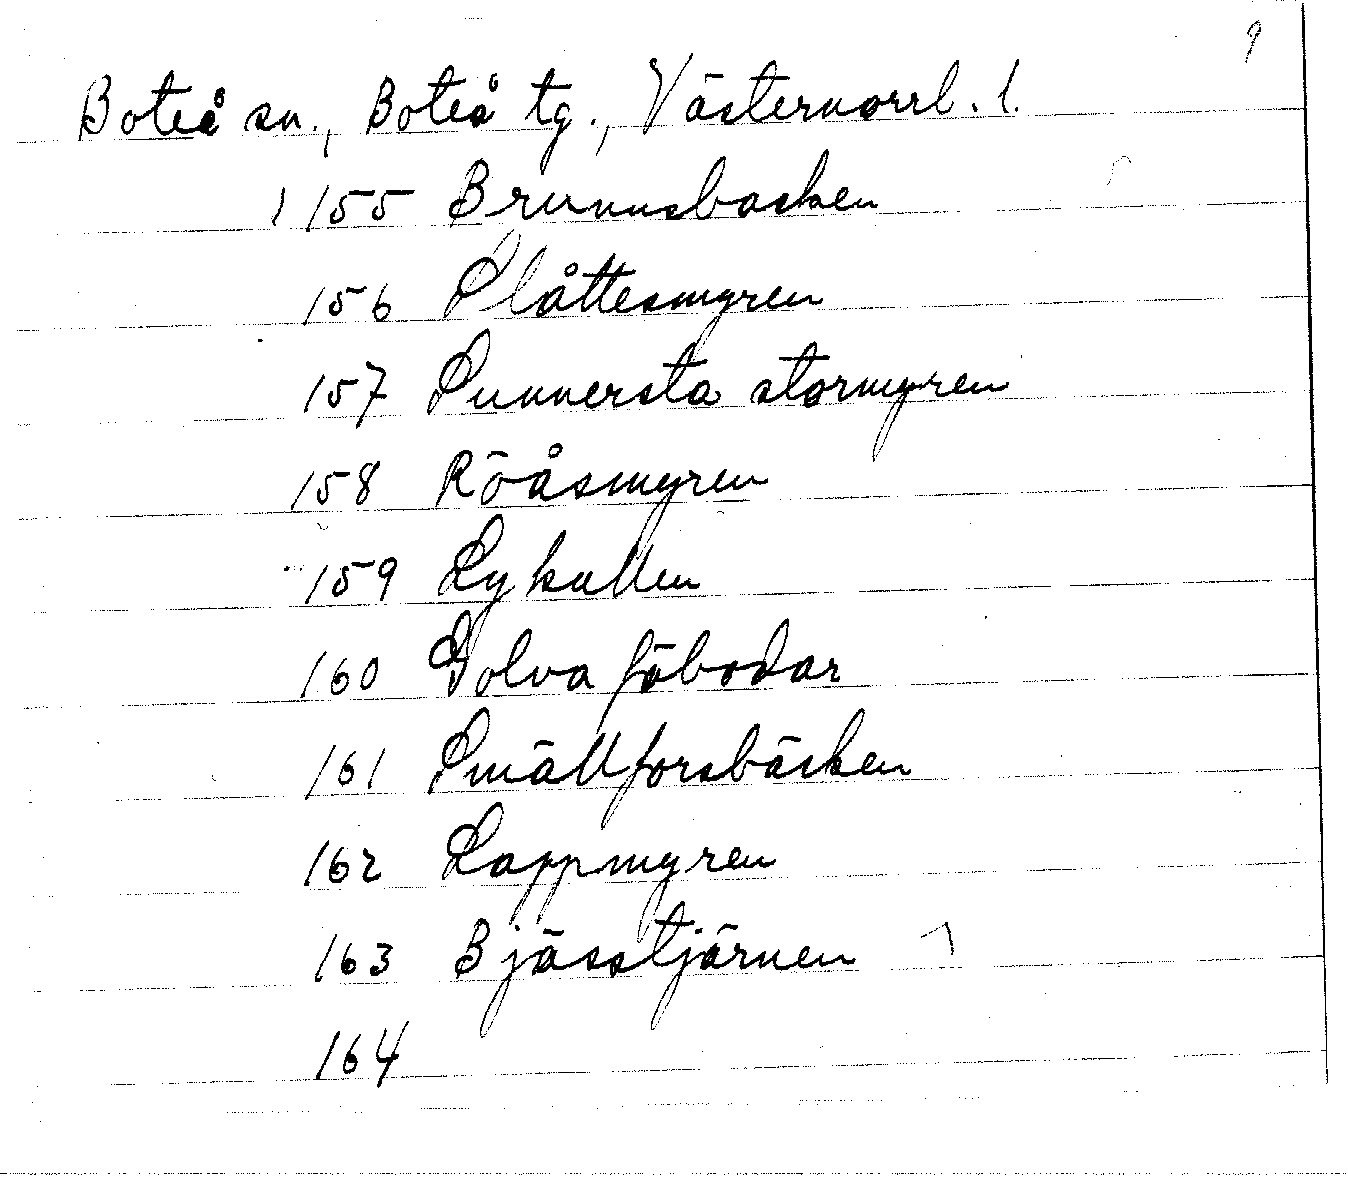 9
Boteå sn., Boteå tg., Västernorrl. l.
155 Brunnsbacken
156 Slåttesmyren
157 Sunnersta stormyren
158 Röåsmyren
159 Lykallen
160 Solva fäbodar
161 Smällforsbäcken
162 Lappmyren
163 Bjässtjärnen
164